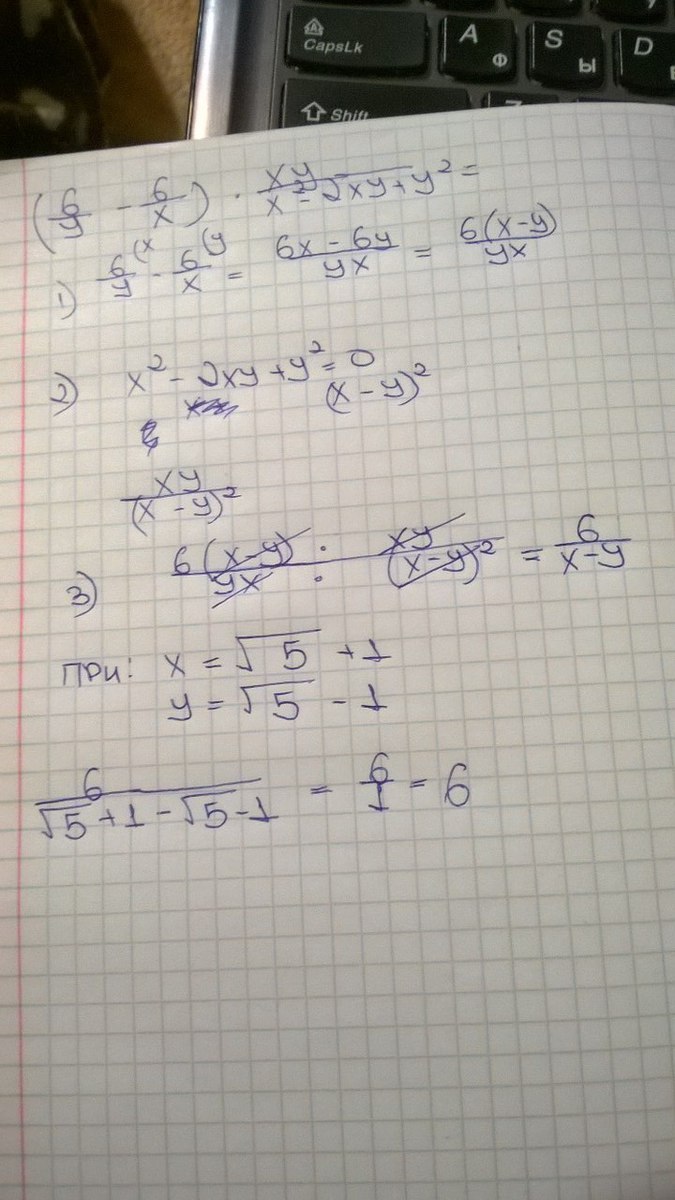 CapsLk A Ф S Ы D
Shift
(6/y - 6/x) · xy/(x² - 2xy + y²) =
1) 6/y (x - 6/x (y = (6x - 6y)/yx = 6(x-y)/yx
2) x² - 2xy + y² = 0
(x - y)²
xy/(x - y)²
3) 6(x-y)/yx : xy/(x-y)² = 6/(x-y)
при: x = √5 + 1
y = √5 - 1
6/(√5 + 1 - √5 - 1) = 6/1 = 6